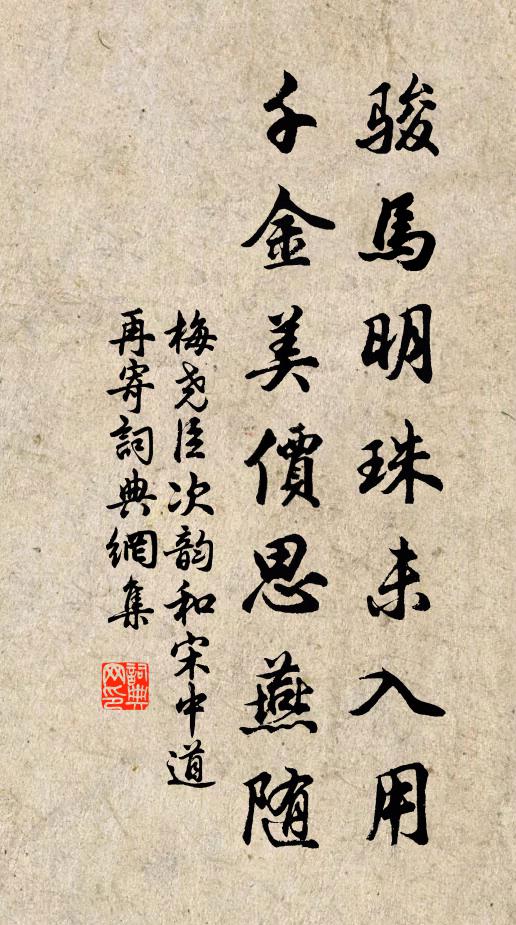 骏馬明珠未入用
千金美價思燕随
梅尧臣次韵和宋中道
再寄詞典網集
詞典
网印